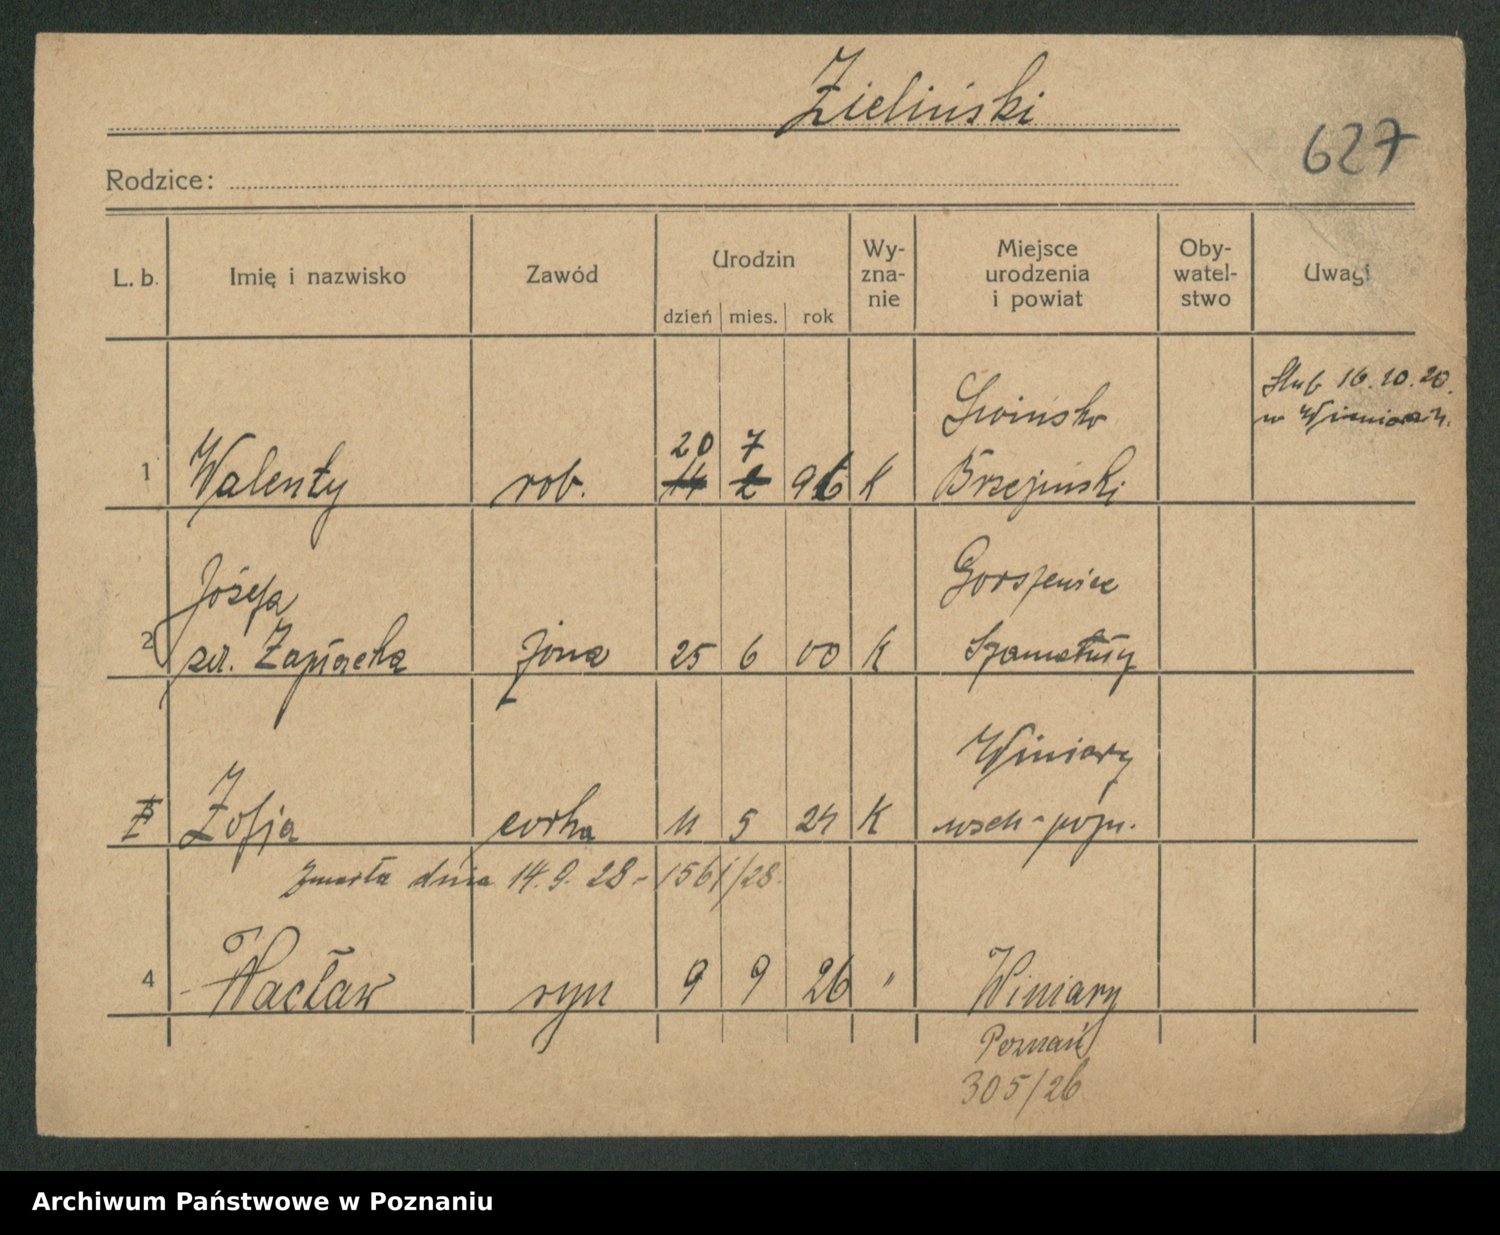 Zieliński
627
Rodzice:
L. b. Imię i nazwisko Zawód Urodzin dzień mies. rok Wy-zna-nie Miejsce urodzenia i powiat Oby-watel-stwo Uwagi
Ślub 16.10.20.
w Winiarach.
20 7
1 Walenty rob. 14 2 96 K
Józefa
2 ur. żona 25 6 00 K Szamotuły
Winiary
Zofja corka 11 5 24 K wsch-pozn.
Zmarła dnia 14.9.28 - 1561/28.
4 Wacław syn 9 9 26 " Winiary
Poznań
305/26
Archiwum Państwowe w Poznaniu